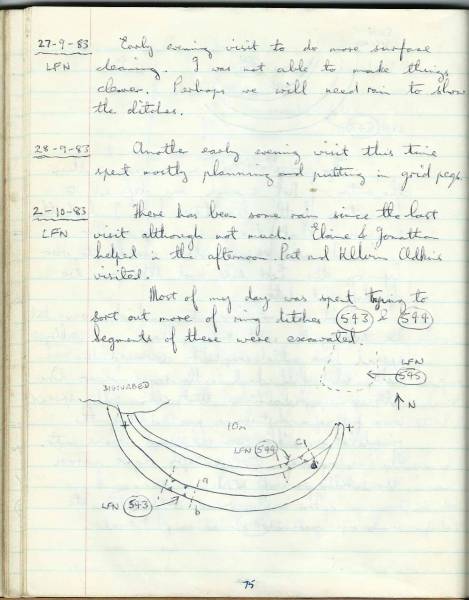 27-9-83 Early evening visit to do more surface
LFN cleaning. I was not able to make things
clearer. Perhaps we will need rain to show
the ditches.
28-9-83 Another early evening visit this time
spent mostly planning and putting in grid pegs.
2-10-83 There has been some rain since the last
LFN visit although not much. Elaine & Jonathan
helped in the afternoon. Pat and
visited.
Most of my day was spent trying to
sort out more of ring ditches 543 & 544
Segments of these were excavated.
LFN
545
DISTURBED
N
10m
LFN 544
c
d
a
LFN 543
b
75